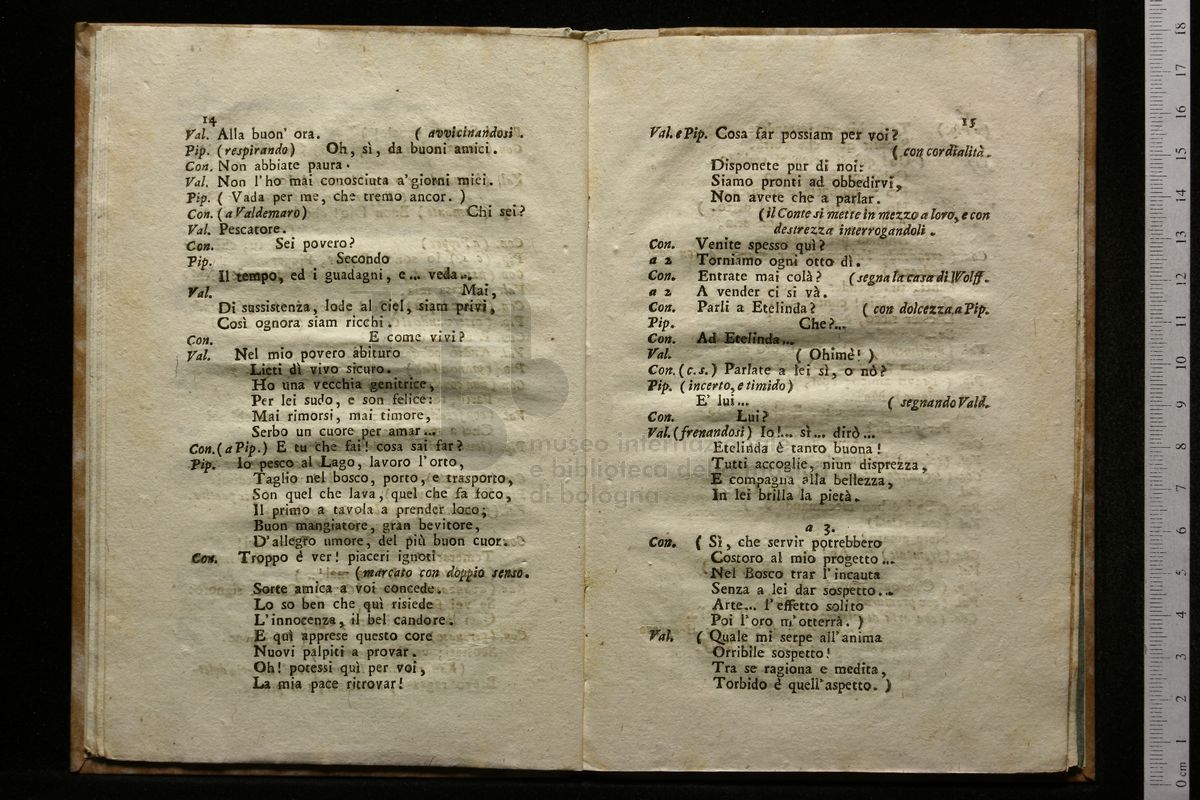 14
Val. Alla buon' ora. ( avvicinandosi.
Pip. (respirando) Oh, sì, da buoni amici.
Con. Non abbiate paura.
Val. Non l'ho mai conosciuta a'giorni miei.
Pip. ( Vada per me, che tremo ancor. )
Con. (a Valdemaro) Chi sei?
Val. Pescatore.
Con. Sei povero?
Pip. Secondo
Il tempo, ed i guadagni, e... veda...
Val. Mai,
Di sussistenza, lode al ciel, siam privi,
Così ognora siam ricchi.
Con. E come vivi?
Val. Nel mio povero abituro
Lieti dì vivo sicuro.
Ho una vecchia genitrice,
Per lei sudo, e son felice:
Mai rimorsi, mai timore,
Serbo un cuore per amar...
Con. (a Pip.) E tu che fai! cosa sai far?
Pip. Io pesco al Lago, lavoro l'orto,
Taglio nel bosco, porto, e trasporto,
Son quel che lava, quel che fa foco,
Il primo a tavola a prender loco;
Buon mangiatore, gran bevitore,
D'allegro umore, del più buon cuor.
Con. Troppo è ver! piaceri ignoti
(marcato con doppio senso.
Sorte amica a voi concede.
Lo so ben che quì risiede
L'innocenza, il bel candore.
E quì apprese questo core
Nuovi palpiti a provar.
Oh! potessi quì per voi,
La mia pace ritrovar!
15
Val. e Pip. Cosa far possiam per voi?
( con cordialità.
Disponete pur di noi:
Siamo pronti ad obbedirvi,
Non avete che a parlar.
(il Conte si mette in mezzo a loro, e con
destrezza interrogandoli.
Con. Venite spesso quì?
a 2 Torniamo ogni otto dì.
Con. Entrate mai colà? (segna la casa di Wolff.
a 2 A vender ci si và.
Con. Parli a Etelinda? ( con dolcezza a Pip.
Pip. Che?...
Con. Ad Etelinda...
Val. ( Ohimè! )
Con. (c.s.) Parlate a lei sì, o nò?
Pip. (incerto, e timido)
E' lui... ( segnando Vald.
Con. Lui?
Val. (frenandosi) Io!... sì... dirò...
Etelinda è tanto buona!
Tutti accoglie, niun disprezza,
E compagna alla bellezza,
In lei brilla la pietà.
a 3.
Con. ( Sì, che servir potrebbero
Costoro al mio progetto...
Nel Bosco trar l'incauta
Senza a lei dar sospetto...
Arte... l'effetto solito
Poi l'oro m'otterrà. )
Val. ( Quale mi serpe all'anima
Orribile sospetto!
Tra se ragiona e medita,
Torbido è quell'aspetto. )
museo internazionale
e biblioteca della musica
di bologna
0 cm 1 2 3 4 5 6 7 8 9 10 11 12 13 14 15 16 17 18